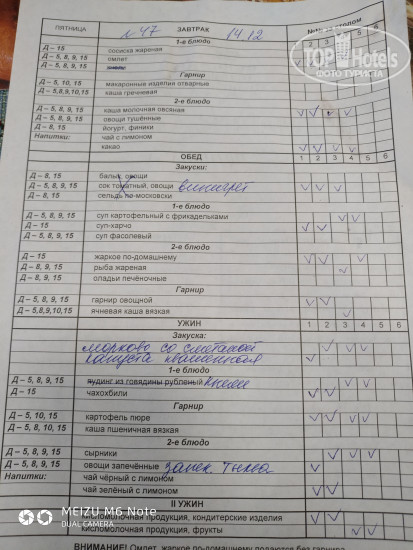 ПЯТНИЦА № 47 ЗАВТРАК 14.12
1-е блюдо 1 2 3 4 5 6
Д – 15 сосиска жареная
Д – 5, 8, 9, 15 омлет
Д – 5, 8, 9, 15
Гарнир
Д – 5, 10, 15 макаронные изделия отварные
Д – 5,8,9,10,15 каша гречневая
2-е блюдо
Д – 5, 8, 9, 15 каша молочная овсяная
Д – 5, 8, 9, 15 овощи тушённые
Д – 8, 15 йогурт, финики
Напитки: чай с лимоном
какао
ОБЕД 1 2 3 4 5 6
Д – 8, 15 балык, овощи
Д – 5, 8, 9, 15 сок томатный, овощи винегрет
Д – 8, 15 сельдь по-московски
1-е блюдо
Д – 5, 8, 9, 15 суп картофельный с фрикадельками
Д – 15 суп-харчо
Д – 5, 8, 9, 15 суп фасолевый
2-е блюдо
Д – 15 жаркое по-домашнему
Д – 8, 9, 15 рыба жареная
Д – 8, 9, 15 оладьи печёночные
Гарнир
Д – 5, 8, 9, 15 гарнир овощной
Д – 5,8,9,10,15 ячневая каша вязкая
УЖИН 1 2 3 4 5 6
Закуска:
морковь со сметаной
капуста квашенная
1-е блюдо
Д – 5, 8, 9, 15 пудинг из говядины рубленый
Д – 15 чахохбили
Гарнир
Д – 5, 10, 15 картофель пюре
Д – 5, 8, 9, 15 каша пшеничная вязкая
2-е блюдо
Д – 5, 8, 9, 15 сырники
Д – 5, 8, 9, 15 овощи запечённые запек. тыква
Напитки: чай чёрный с лимоном
чай зелёный с лимоном
II УЖИН
кисломолочная продукция, кондитерские изделия
кисломолочная продукция, фрукты
ВНИМАНИЕ! Омлет, жаркое по-домашнему подаются без гарнира
TopHotels
ФОТО ТУРИСТА
MEIZU M6 Note
DUAL CAMERA